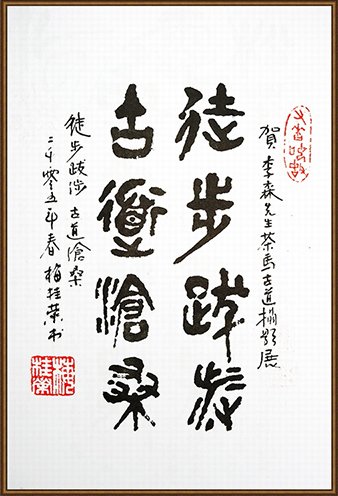 賀李森先生茶馬古道攝影展
徒步跋涉
古道滄桑
徒步跋涉 古道滄桑
二千零五年春 梅桂荣书
梅桂榮